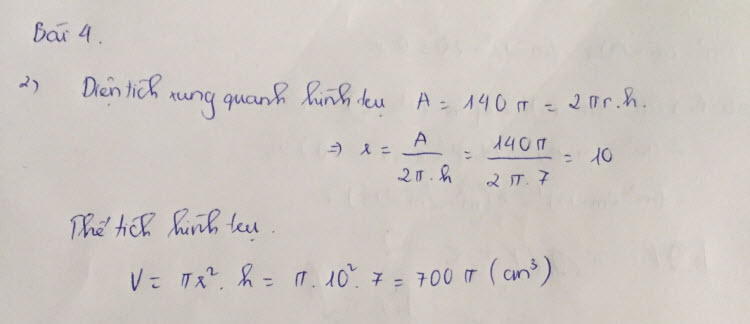 Bài 4.
2) Diện tích xung quanh hình trụ A = 140 π = 2πr.h.
⇒ r = A / (2π.h) = 140π / (2π.7) = 10
Thể tích hình trụ.
V = πr². h = π. 10². 7 = 700 π (cm³)